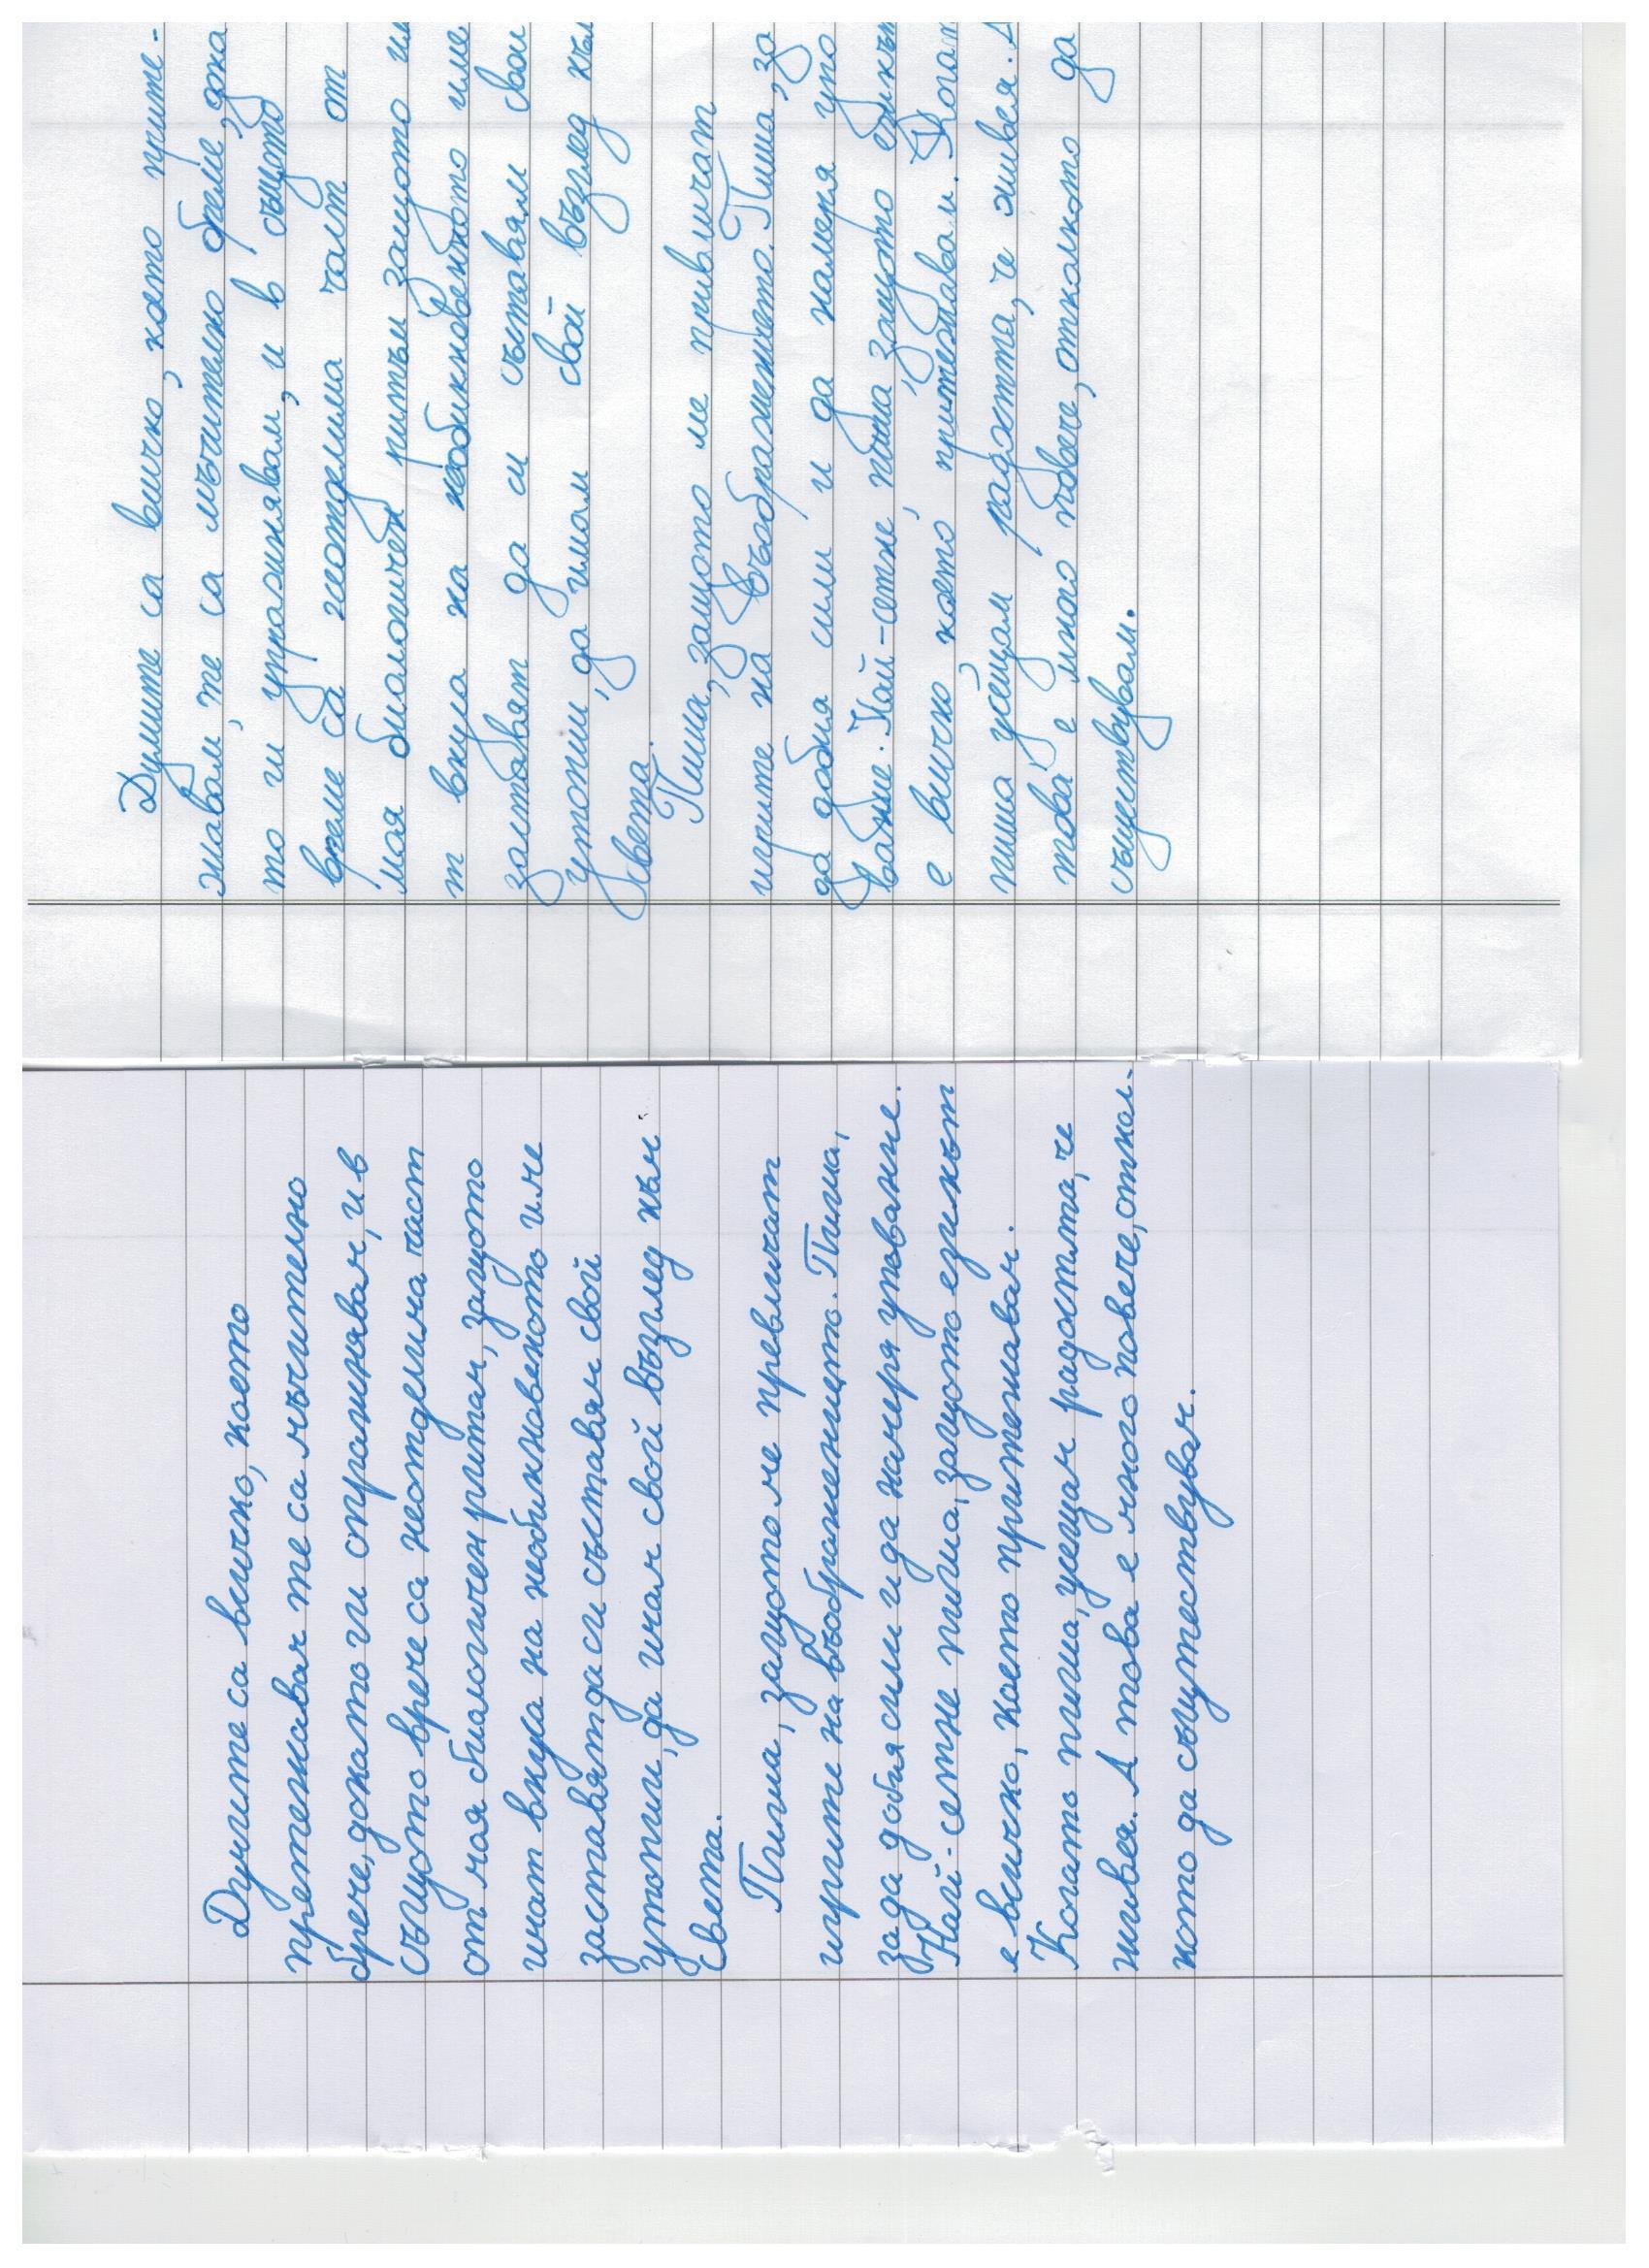 Думите са всичко, което
претежавам те са мъчително
бреме, докато ги упражнявам, и в
същото време са неотделима част
от моя биологичен ритъм, защото
имат вкуса на необикновеното и ме
заставят да си съставям свой
утопии, да имам свой възглед към
света.
Пиша, защото ме превличат
игрите на въображението. Пиша,
за да добия сили и да намеря упование.
Най-сетне пиша, защото езикът
е всичко, което притежавам.
Когато пиша, усещам радостта, че
живея. А това е много повече, откол-
кото да съществувам.
Думите са всичко, което прите-
жавам, те са мъчително бреме, дока
то ги упражнявам, и в същото
време са неотделима част от
моя биологичен ритъм защото им
т вкуса на необикновеното и ме
заставят да си съставям свои
утопии, да имам свой възглед към
света.
Пиша, защото ме привличат
игрите на въображението. Пиша, за
да добия сили и да намеря упо
вание. Най-сетне пиша защото езикът
е всичко което притежавам. Когат
пиша усещам радостта, че живея. А
това е много повече, отколкото да
съществувам.